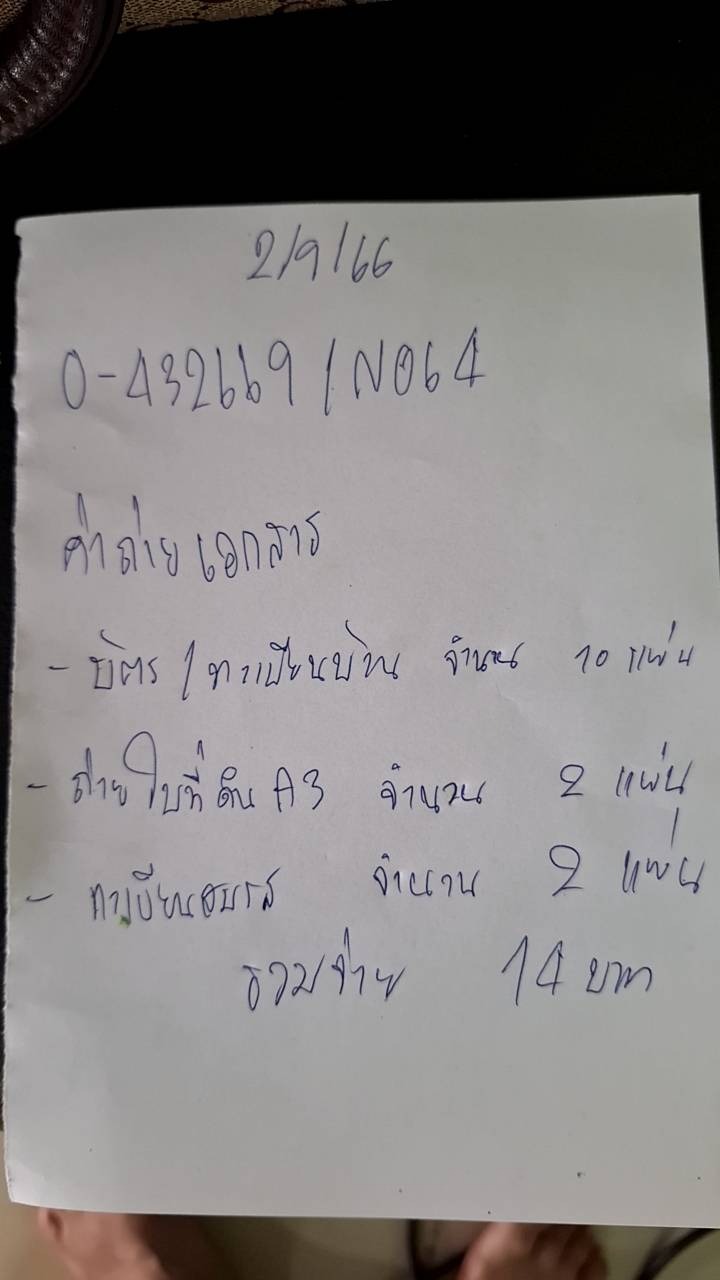 2/9/66
0-432669 / N064
ค่าถ่ายเอกสาร
- บัตร / ทะเบียนบ้าน จำนวน 10 แผ่น
- ถ่ายใบที่ดิน A3 จำนวน 2 แผ่น
- ทะเบียนสมรส จำนวน 2 แผ่น
รวมจ่าย 14 บาท